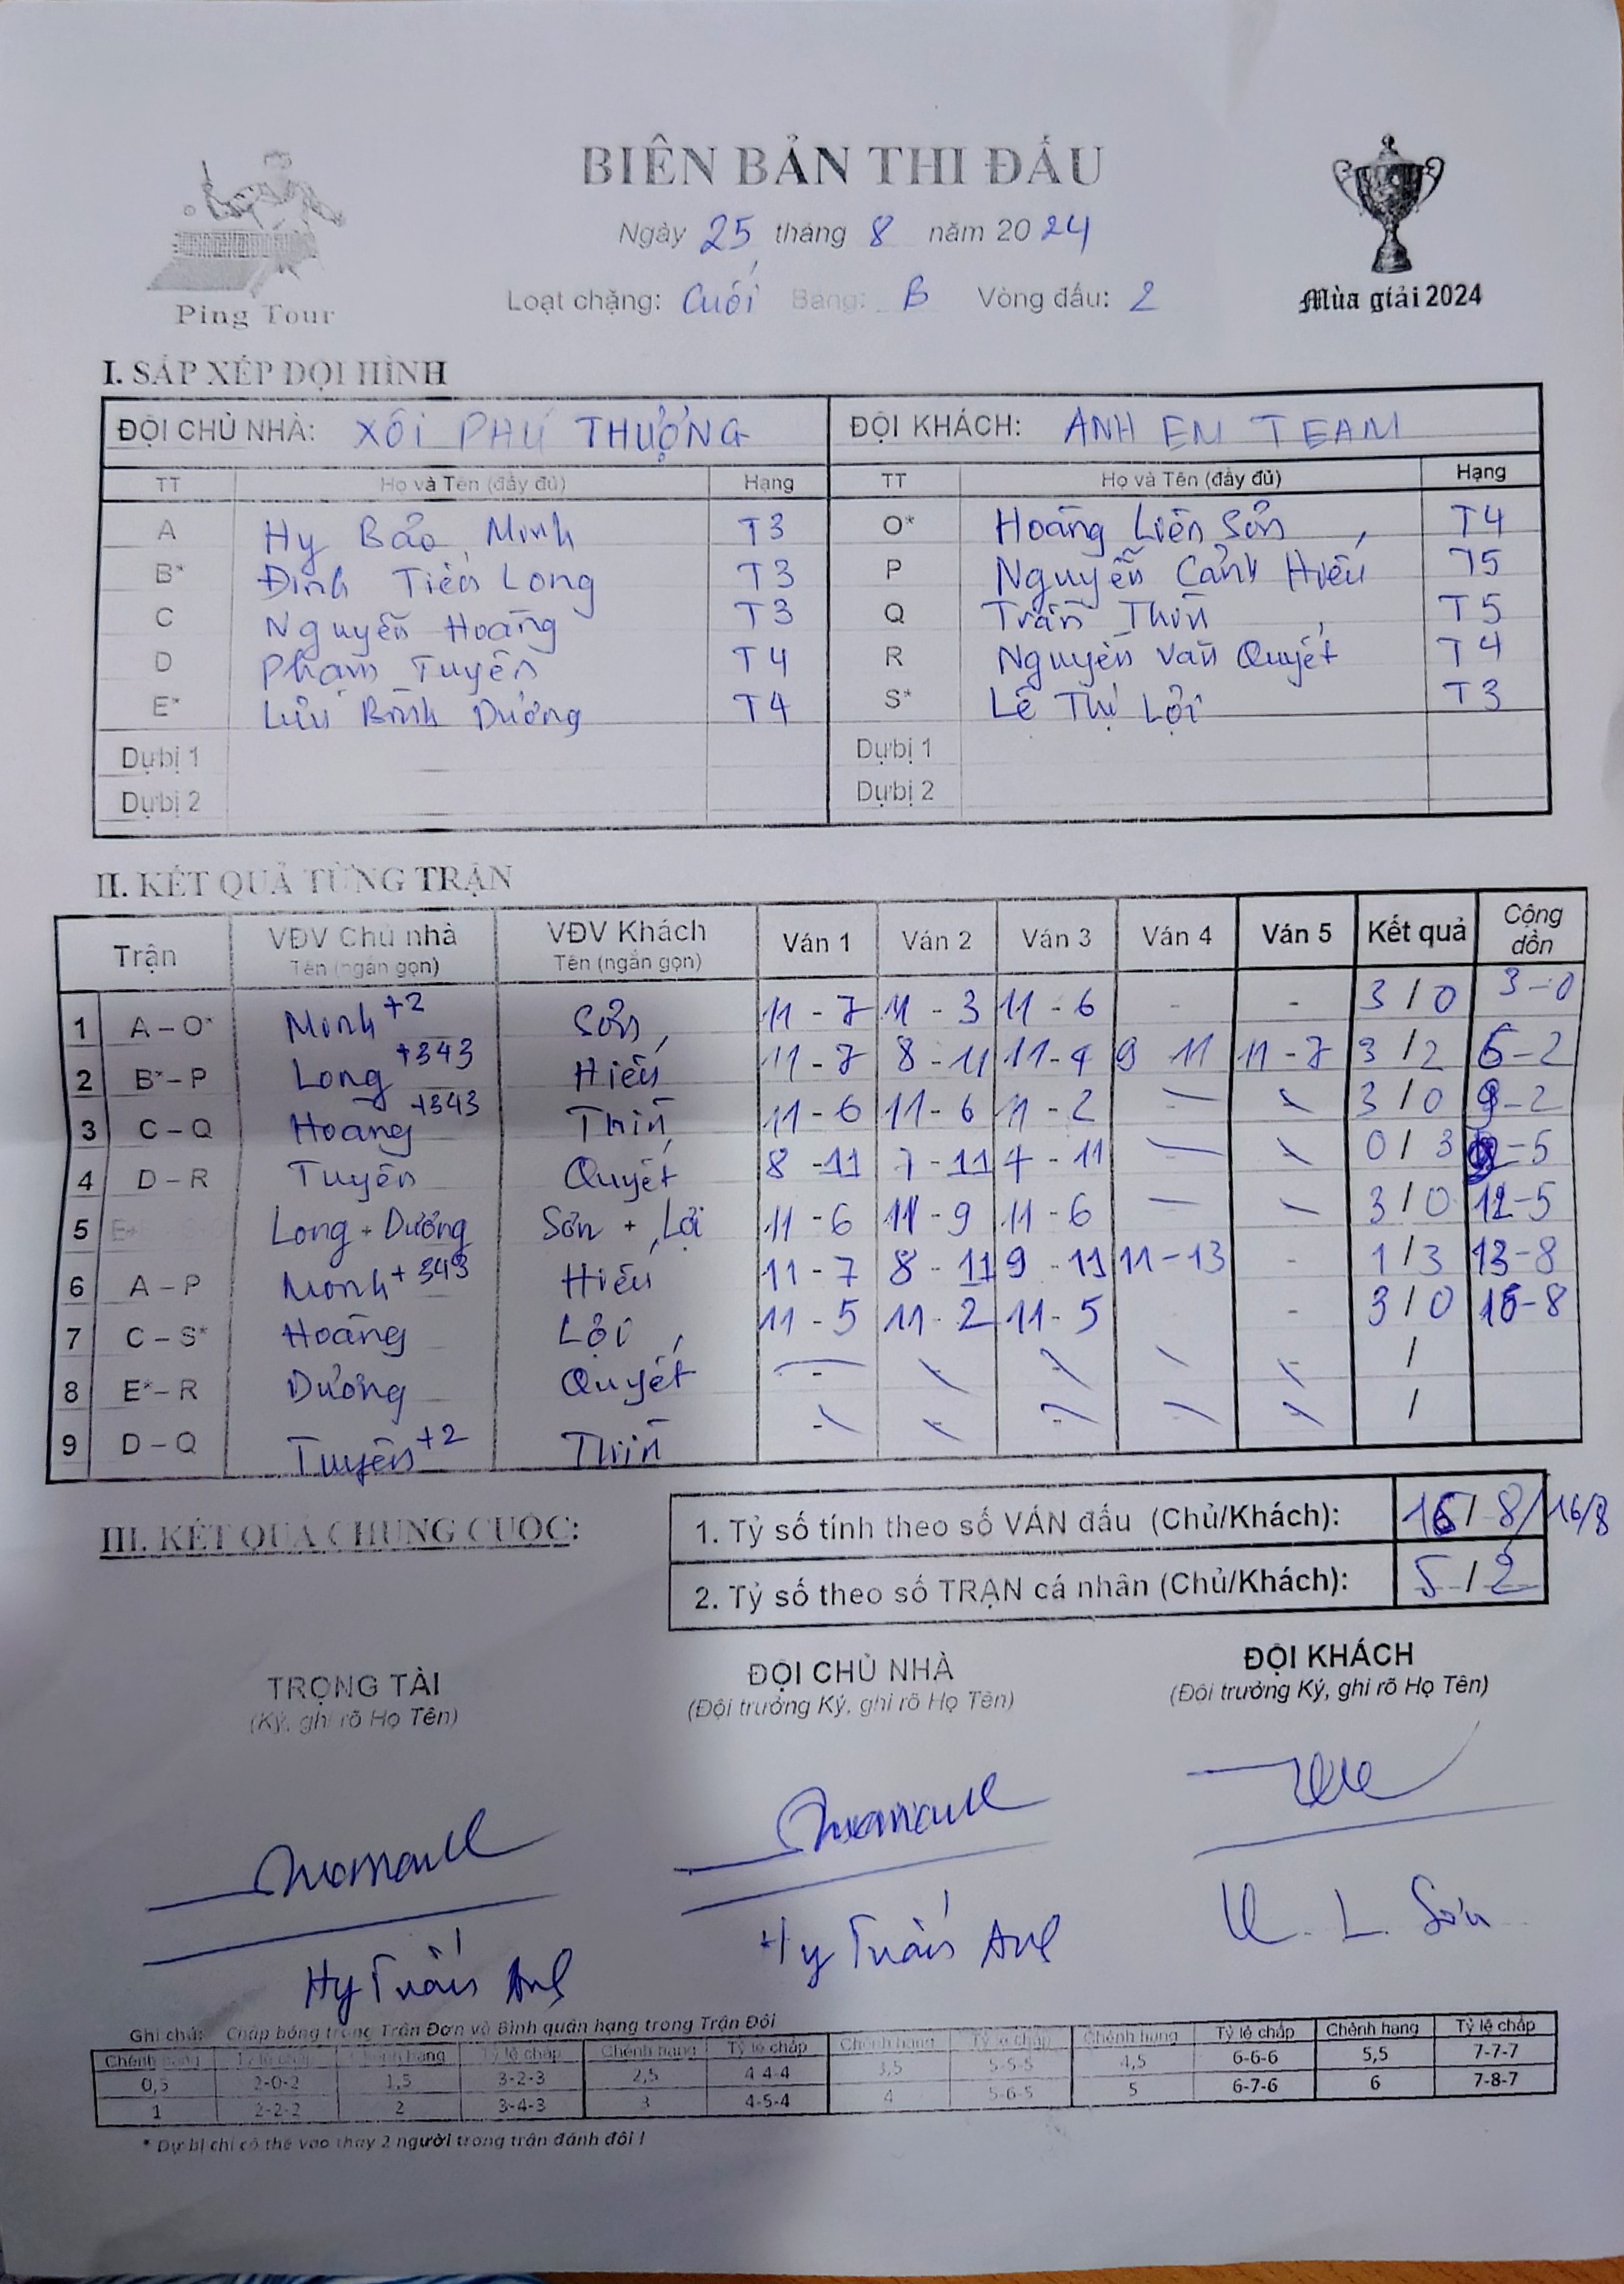 BIÊN BẢN THI ĐẤU
Ngày 25 tháng 8 năm 2024
Loạt chặng: Cuối Bảng: B Vòng đấu: 2
Ping Tour
Mùa giải 2024
I. SẮP XẾP ĐỘI HÌNH
ĐỘI CHỦ NHÀ: XÔI PHÚ THƯỢNG ĐỘI KHÁCH: ANH EM TEAM
TT Họ và Tên (đầy đủ) Hạng TT Họ và Tên (đầy đủ) Hạng
A Hy Bảo Minh T3 O* Hoàng Liên Sơn T4
B* Đinh Tiến Long T3 P Nguyễn Cảnh Hiếu T5
C Nguyễn Hoàng T3 Q Trần Thìn T5
D Phạm Tuyên T4 R Nguyễn Văn Quyết T4
E* Lưu Bình Dương T4 S* Lê Thị Lợi T3
Dự bị 1 Dự bị 1
Dự bị 2 Dự bị 2
II. KẾT QUẢ TỪNG TRẬN
Trận VĐV Chủ nhà VĐV Khách Ván 1 Ván 2 Ván 3 Ván 4 Ván 5 Kết quả Cộng dồn
Tên (ngắn gọn) Tên (ngắn gọn)
1 A – O* Minh +2 Sơn 11 - 7 11 - 3 11 - 6 - - 3 / 0 3-0
2 B* – P Long +343 Hiếu 11 - 7 8 - 11 11 - 4 9 11 11 - 7 3 / 2 6-2
3 C – Q Hoàng +343 Thìn 11 - 6 11 - 6 11 - 2 3 / 0 9-2
4 D – R Tuyên Quyết 8 - 11 7 - 11 4 - 11 0 / 3 9-5
5 Long + Dương Sơn + Lợi 11 - 6 11 - 9 11 - 6 3 / 0 12-5
6 A – P Minh + 343 Hiếu 11 - 7 8 - 11 9 - 11 11 - 13 - 1 / 3 13-8
7 C – S* Hoàng Lợi 11 - 5 11 - 2 11 - 5 - 3 / 0 16-8
8 E* – R Dương Quyết /
9 D – Q Tuyên +2 Thìn /
III. KẾT QUẢ CHUNG CUỘC:
1. Tỷ số tính theo số VÁN đấu (Chủ/Khách): 16 / 8 / 16/8
2. Tỷ số theo số TRẬN cá nhân (Chủ/Khách): 5 / 2
TRỌNG TÀI ĐỘI CHỦ NHÀ ĐỘI KHÁCH
(Ký, ghi rõ Họ Tên) (Đội trưởng Ký, ghi rõ Họ Tên) (Đội trưởng Ký, ghi rõ Họ Tên)
Hy Tuấn Anh Hy Tuấn Anh H. L. Sơn
Ghi chú: Chấp bóng trong Trận Đơn và Bình quân hạng trong Trận Đôi
Chênh hạng Tỷ lệ chấp Chênh hạng Tỷ lệ chấp Chênh hạng Tỷ lệ chấp Chênh hạng Tỷ lệ chấp Chênh hạng Tỷ lệ chấp Chênh hạng Tỷ lệ chấp
0,5 2-0-2 1,5 3-2-3 2,5 4-4-4 3,5 5-5-5 4,5 6-6-6 5,5 7-7-7
1 2-2-2 2 3-4-3 3 4-5-4 4 5-6-5 5 6-7-6 6 7-8-7
* Dự bị chỉ có thể vào thay 2 người trong trận đánh đôi !